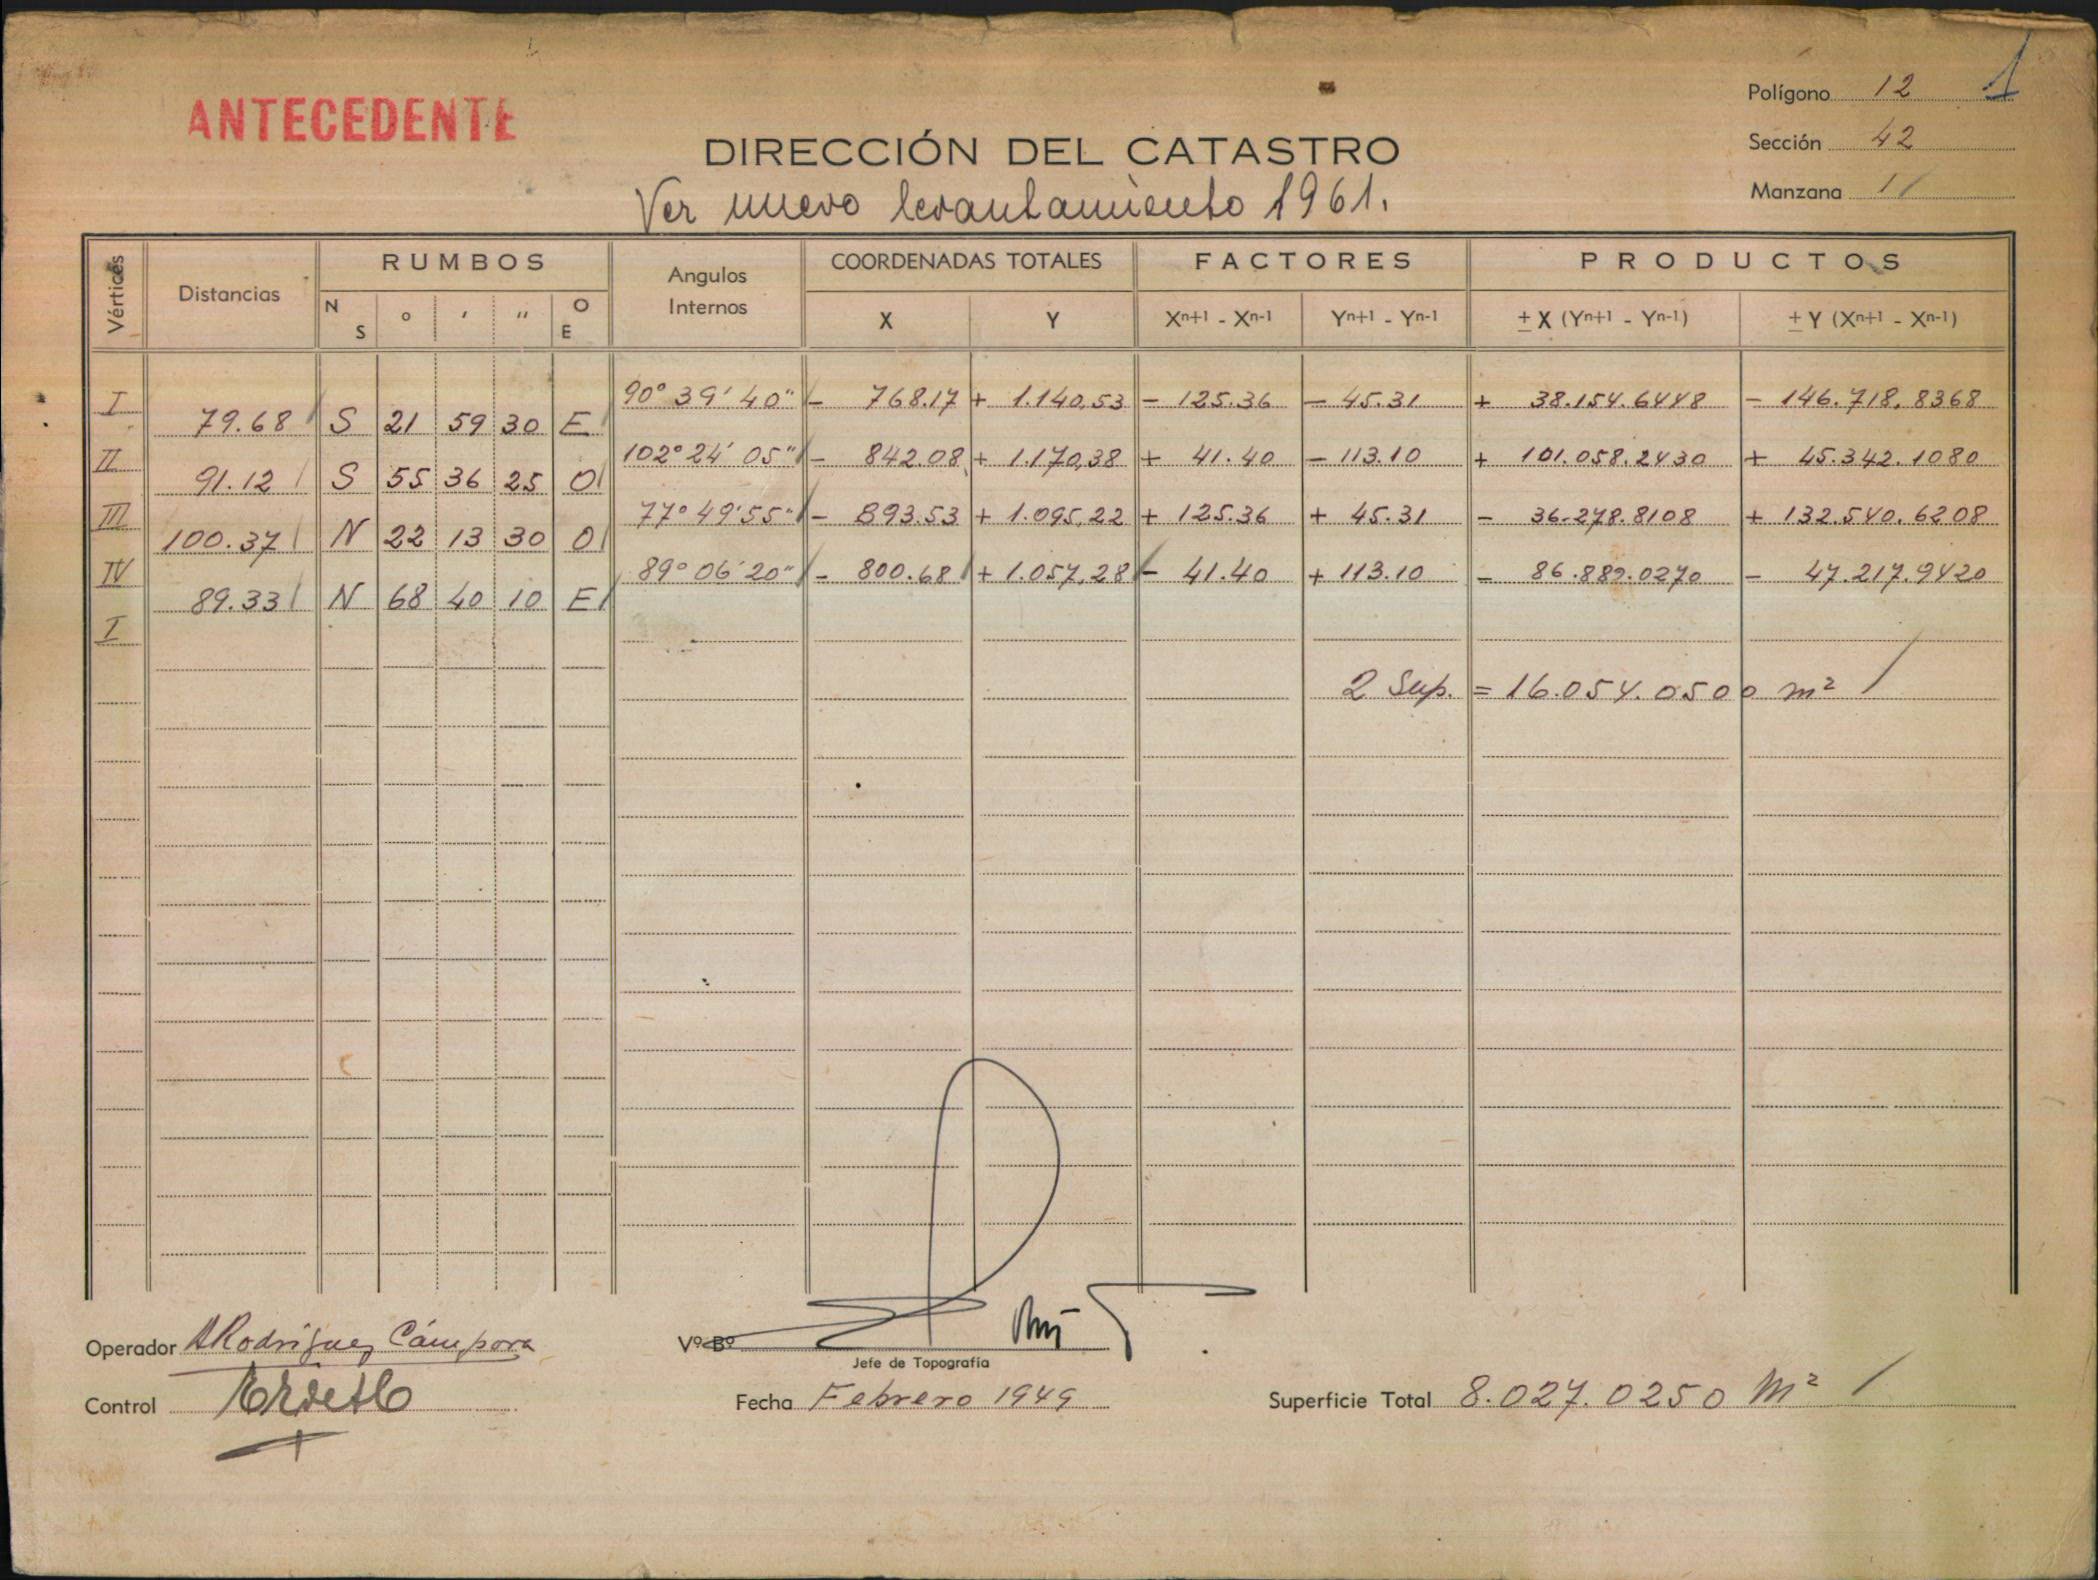 ANTECEDENTE
Polígono 12 1
Sección 42
Manzana 11
DIRECCIÓN DEL CATASTRO
Ver nuevo levantamiento 1961.
Vértices Distancias RUMBOS Angulos Internos COORDENADAS TOTALES FACTORES PRODUCTOS
N S ° ′ ″ O E X Y Xn+1 - Xn-1 Yn+1 - Yn-1 ± X (Yn+1 - Yn-1) ± Y (Xn+1 - Xn-1)
I 90° 39' 40" - 768.17 + 1.140,53 - 125.36 - 45.31 + 38.154.6448 - 146.718.8368
79.68 S 21 59 30 E
II 102° 24' 05" - 842.08 + 1.170,38 + 41.40 - 113.10 + 101.058.2430 + 45.342.1080
91.12 S 55 36 25 O
III 77° 49' 55" - 893.53 + 1.095,22 + 125.36 + 45.31 - 36.278.8108 + 132.540.6208
100.37 N 22 13 30 O
IV 89° 06' 20" - 800.68 + 1.057,28 - 41.40 + 113.10 - 86.889.0270 - 47.217.9420
89.33 N 68 40 10 E
I
2 Sup. = 16.054.0500 m²
Operador ARodriguez Cámpora
Vº Bº
Jefe de Topografía
Control
Fecha Febrero 1949
Superficie Total 8.027.0250 M²